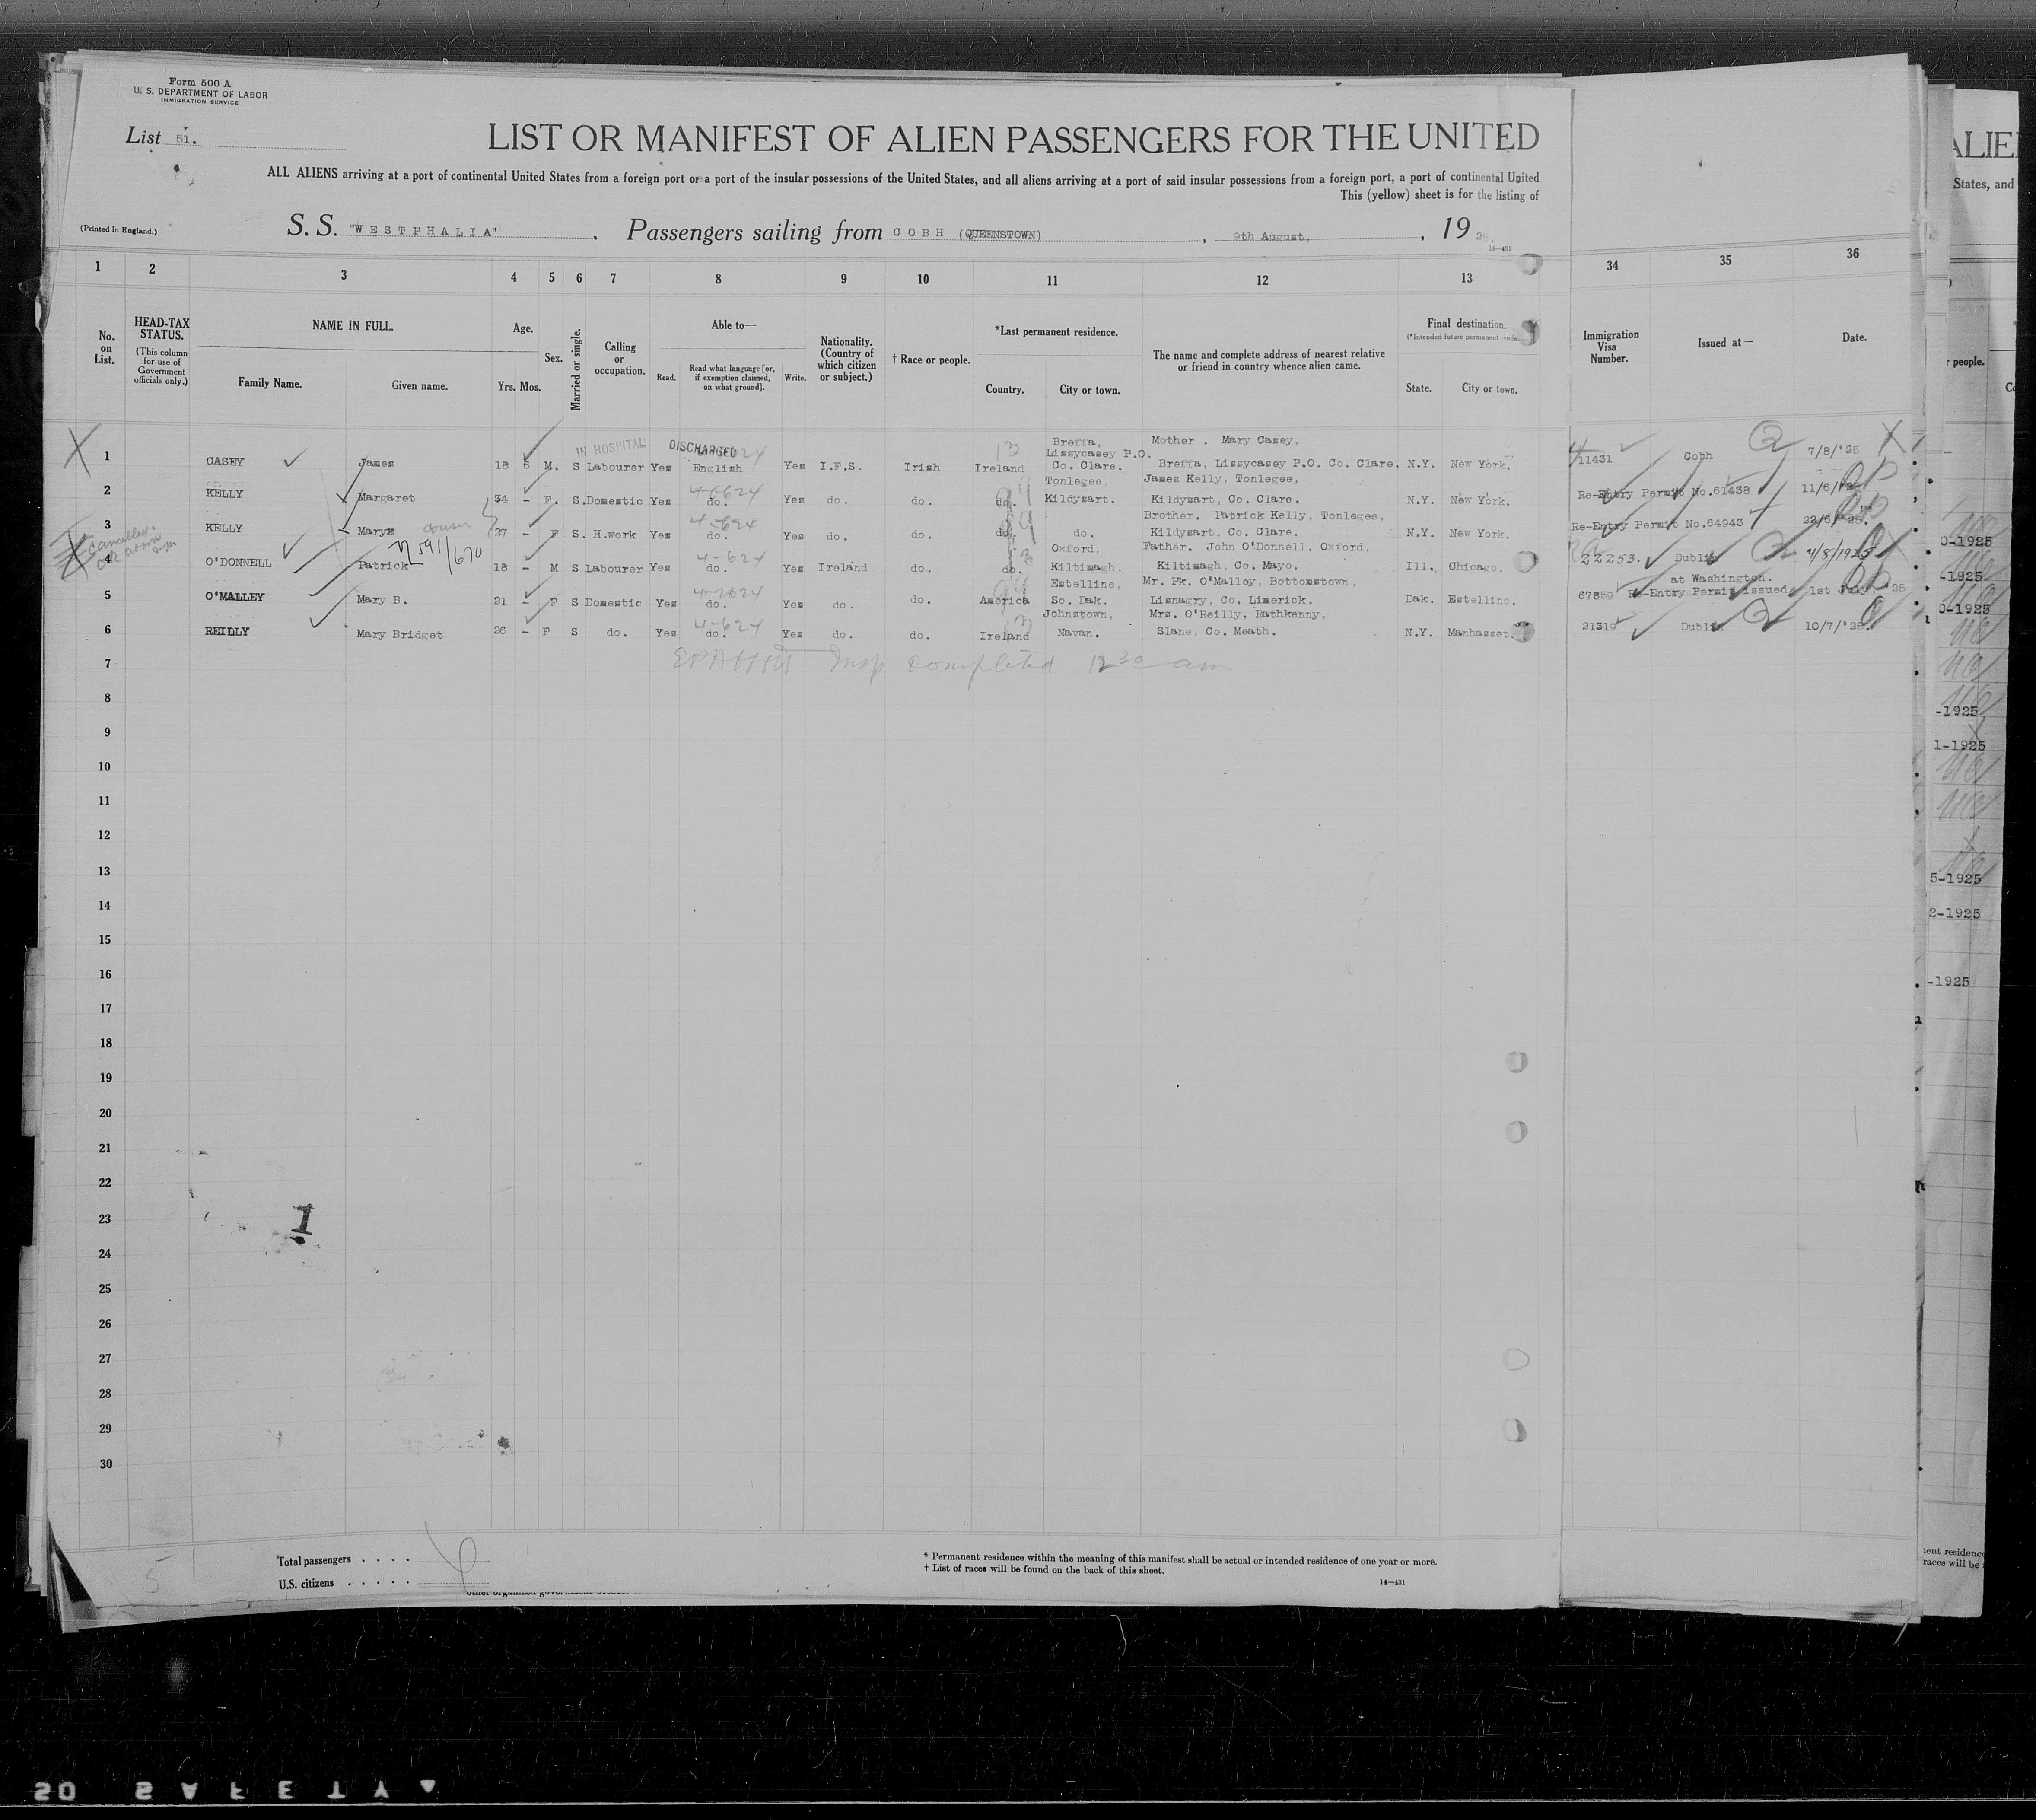 Form 500 A
U. S. DEPARTMENT OF LABOR
IMMIGRATION SERVICE
List 51.
LIST OR MANIFEST OF ALIEN PASSENGERS FOR THE UNITED
ALL ALIENS arriving at a port of continental United States from a foreign port or a port of the insular possessions of the United States, and all aliens arriving at a port of said insular possessions from a foreign port, a port of continental United
This (yellow) sheet is for the listing of
(Printed in England.)
S. S. "WESTPHALIA" . Passengers sailing from COBH (QUEENSTOWN) , 9th August, , 19 25.
14—431
1 2 3 4 5 6 7 8 9 10 11 12 13 34 35 36
No. on List.
HEAD-TAX STATUS.
(This column for use of Government officials only.)
NAME IN FULL.
Family Name. Given name.
Age.
Yrs. Mos.
Sex.
Married or single.
Calling or occupation.
Able to—
Read. Read what language [or, if exemption claimed, on what ground]. Write.
Nationality. (Country of which citizen or subject.)
† Race or people.
*Last permanent residence.
Country. City or town.
The name and complete address of nearest relative or friend in country whence alien came.
Final destination.
(*Intended future permanent
State. City or town.
Immigration Visa Number.
Issued at—
Date.
IN HOSPITAL DISCHARGED
1 CASEY James 18 5 M. S Labourer Yes English Yes I.F.S. Irish Ireland Breffa, Lissycasey P.O. Co. Clare. Mother . Mary Casey, Breffa, Lissycasey P.O. Co. Clare. N.Y. New York. 11431 Cobh 7/8/'25
2 KELLY Margaret 34 - F. S. Domestic Yes do. Yes do. do. do. Tonlegee, Kildysart. James Kelly, Tonlegee, Kildysart, Co. Clare. N.Y. New York. Re-Entry Permit No.61438 11/6/'25
3 KELLY Mary cousin 27 - F S. H.work Yes do. Yes do. do. do. do. Brother. Patrick Kelly, Tonlegee, Kildysart, Co. Clare. N.Y. New York. Re-Entry Permit No.64943 22/6/'25.
591/670
4 O'DONNELL Patrick 18 - M S Labourer Yes do. Yes Ireland do. do. Oxford, Kiltimagh. Father. John O'Donnell, Oxford, Kiltimagh, Co. Mayo. Ill. Chicago. 22253. Dublin 4/8/1925
5 O'MALLEY Mary B. 21 - F S Domestic Yes do. Yes do. do. America Estelline, So. Dak. Mr. Pk. O'Malley, Bottomstown, Lisnagry, Co. Limerick. Dak. Estelline. 67859 Re-Entry Permit issued at Washington. 1st July, 25
6 REILLY Mary Bridget 26 - F S do. Yes do. Yes do. do. Ireland Johnstown, Navan. Mrs. O'Reilly, Rathkenny, Slane, Co. Meath. N.Y. Manhasset. 21319 Dublin 10/7/'25
7 Insp completed 12 30 am
8
9
10
11
12
13
14
15
16
17
18
19
20
21
22
23
24
25
26
27
28
29
30
1
Total passengers . . . .
U.S. citizens . . . . .
* Permanent residence within the meaning of this manifest shall be actual or intended residence of one year or more.
† List of races will be found on the back of this sheet.
14—431
ALIE
States, and
r people.
0-1925
-1925
0-1925
-1925
1-1925
5-1925
2-1925
-1925
races will be
SAFETY